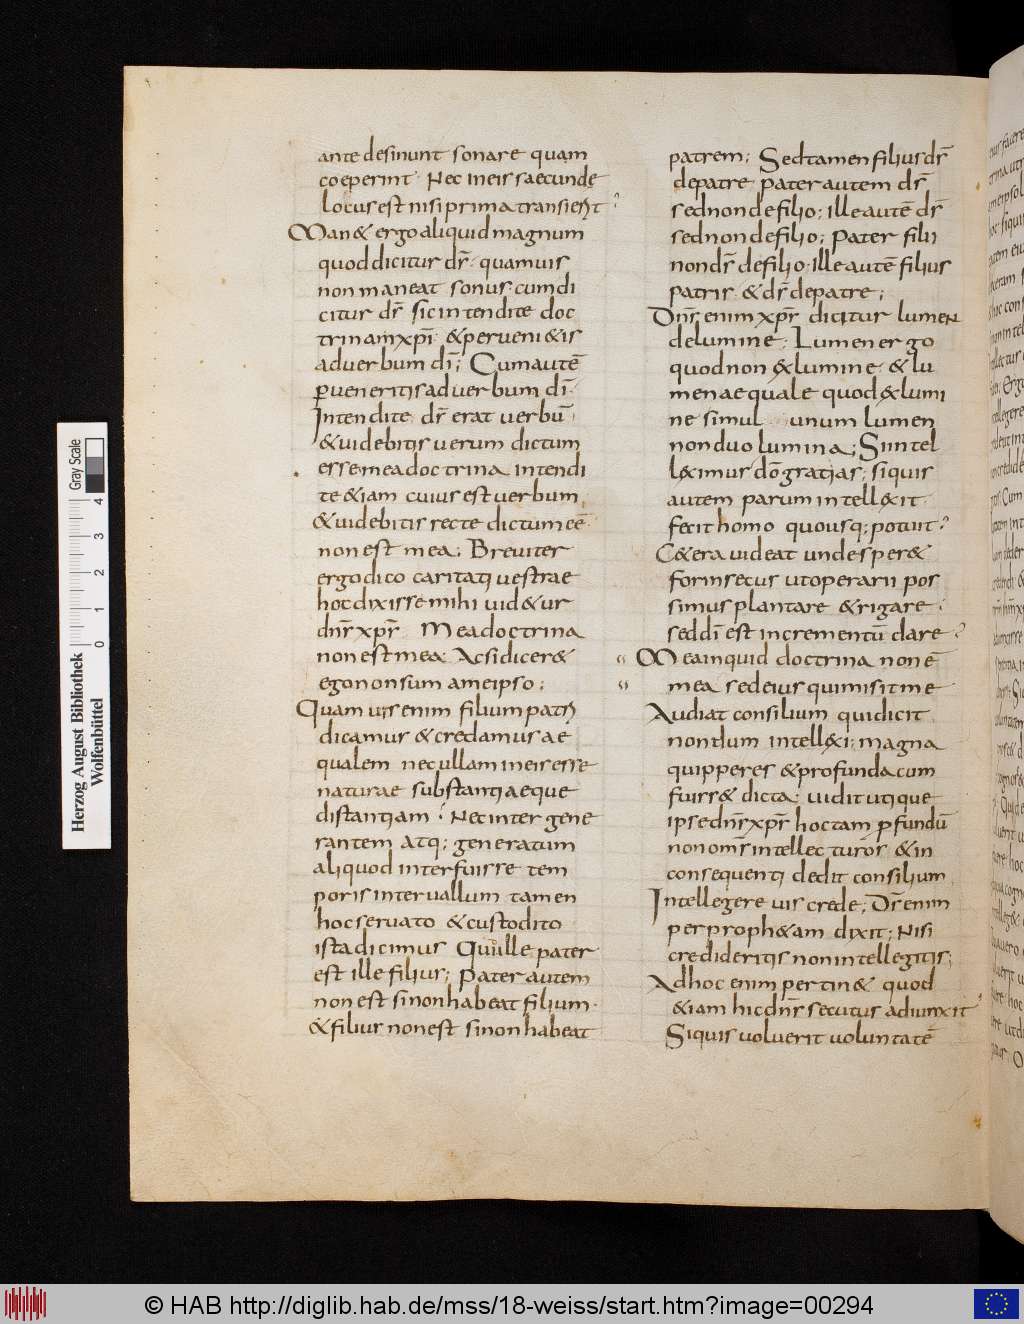 ante desinunt sonare quam
coeperint· Nec in eis saecunde
locus est nisi prima transierit?
Man& ergo aliquid magnum
quod dicitur ds̄· quamuis
non maneat sonus· cum di
citur ds̄ sic intendite doc
trinam xp̄i· & perueni&is
ad uerbum dī; Cum autē
ꝑueneritis ad uerbum dī·
Intendite· ds̄ erat uerbū·
& uidebitis uerum dictum
esse· mea doctrina intendi
te &iam cuius est uerbum
& uidebitis recte dictum eē·
non est mea; Breuiter
ergo dico caritati uestrae
hoc dixisse mihi uid&ur
dn̄s xp̄s Mea doctrina
non est mea· Ac si dicer&
ego non sum a me ipso;
Quamuis enim filium patris
dicamus & credamus ae
qualem nec ullam in eis esse
naturae substantiaeque
distantiam? Nec inter gene
rantem atq; generatum
aliquod interfuisse tem
poris interuallum tamen
hoc seruato & custodito
ista dicimus Quille pater
est ille filius; Pater autem
non est si non habeat filium·
& filius non est si non habeat
patrem; Sed tamen filius ds̄
de patre pater autem ds̄
sed non de filio; ille autē ds̄
sed non de filio; Pater filii
non ds̄ de filio· ille autē filius
patris & ds̄ de patre;
Dn̄s enim xp̄s dicitur lumen
de lumine; Lumen ergo
quod non & lumine· & lu
men aequale quod & lumi
ne simul unum lumen
non duo lumina; Si intel
l&imus dō gratias; si quis
autem parum intell&it
fecit homo quousq; potuit?
C&era uideat unde sper&
forinsecus ut operarii pos
simus plantare & rigare·
sed dī est incrementū dare?
Mea inquid doctrina non ē
mea sed eius qui misit me
Audiat consilium qui dicit
nondum intell&i; magna
quippe res & profunda cum
fuiss& dicta· uidit utique
ipse dn̄s xp̄s hoc tam ꝓfundū
non om̄s intellecturos & in
consequenti dedit consilium
Intellegere uis crede; Ds̄ enim
per proph&am dixit; Nisi
credideritis non intellegitis;
Ad hoc enim pertin& quod
&iam hic dn̄s secutus adiunxit
Si quis uoluerit uoluntatē
Herzog August Bibliothek
Wolfenbüttel
0 1 2 3 4
Gray Scale
© HAB http://diglib.hab.de/mss/18-weiss/start.htm?image=00294